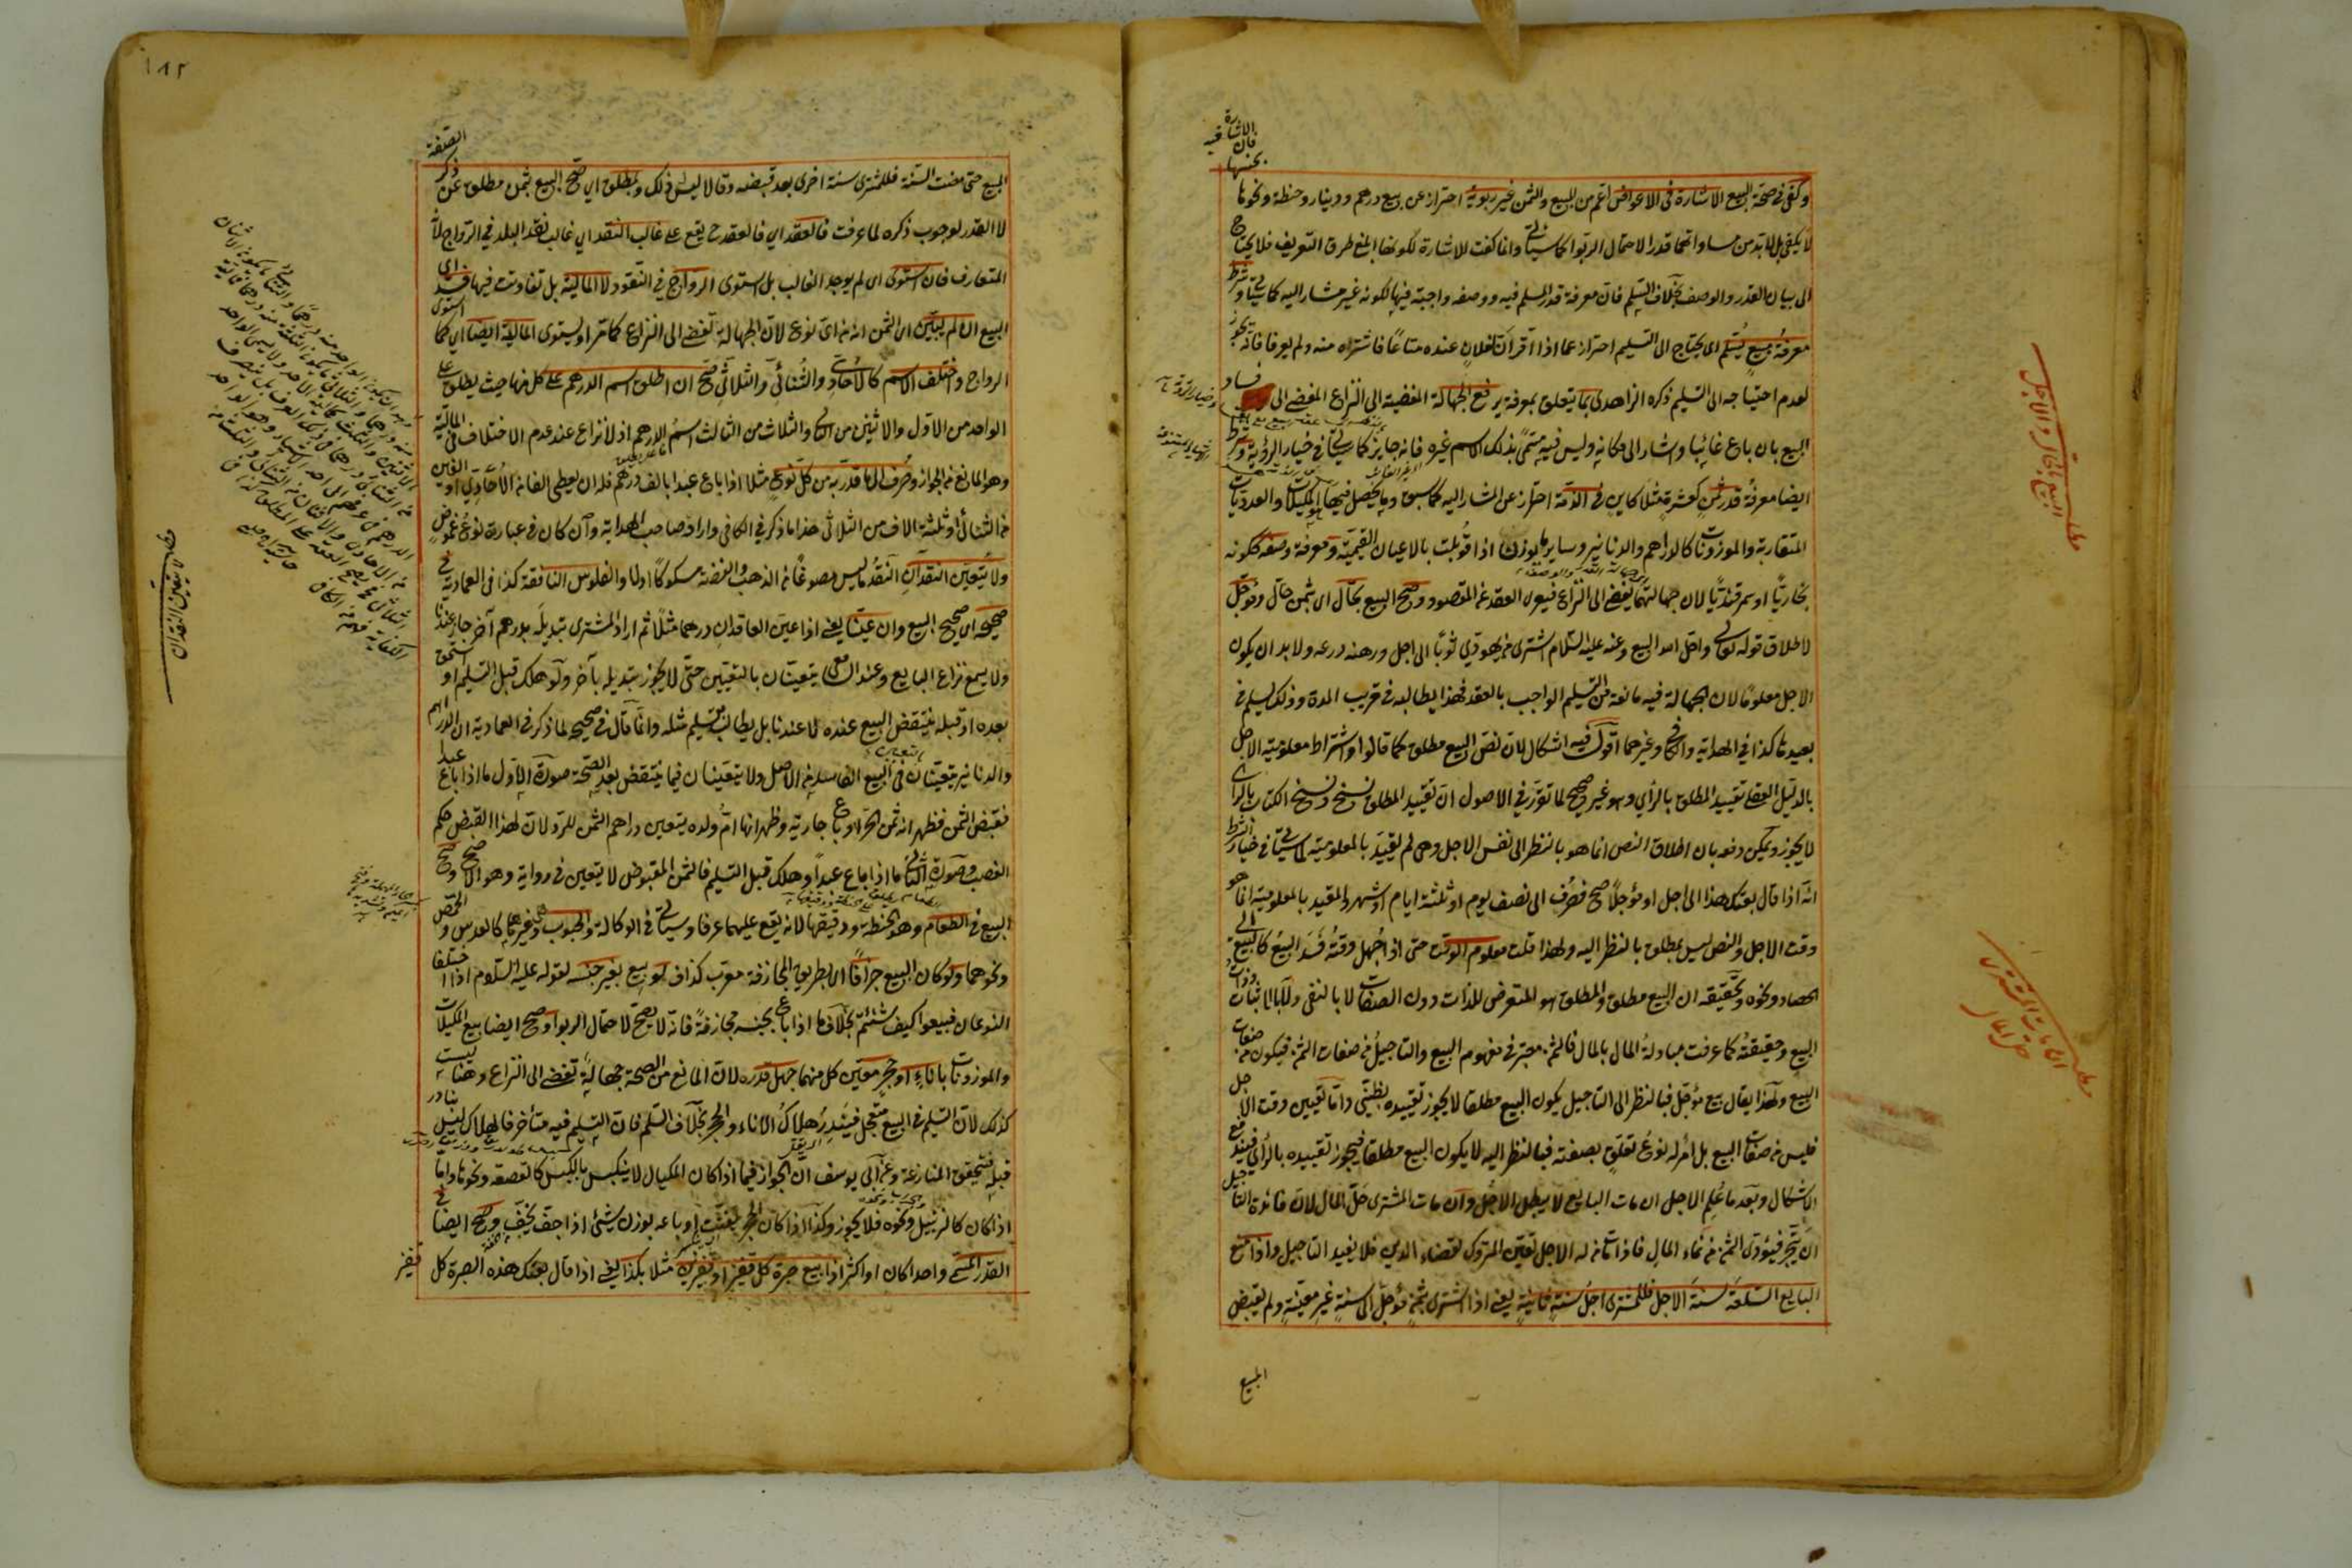 وكفى في صحة البيع الاشارة في الاعواض اعم من المبيع والثمن غير ربوية احترازا عن بيع درهم ودينار وحنطة ونحوها بجنسها فان الاشارة فيه
لا يكفي بل لا بد من مساواتهما قدرا لاحتمال الربوا كما سيأتي وانما كفت الاشارة لكونها ابلغ طرق التعريف فلا يحتاج
الى بيان القدر والوصف بخلاف السلم فان معرفة قدر المسلم فيه ووصفه واجبة فيها لكونه غير مشار اليه كما سيأتي وشرط
معرفة مبيع يسلم اى يحتاج الى التسليم احترازا عما اذا اقر ان لفلان عنده متاعا فاشتراه منه ولم يعرفا فانه يجوز
لعدم احتياجه الى التسليم ذكره الزاهدى بما يتعلق بمعرفة يرفع الجهالة المفضية الى النزاع المفضى الى فساد
البيع بان باع غائبا واشار الى مكانه وليس فيه مسمى بذلك الاسم غيره فانه جايز كما سيأتي في خيار الرؤية وشرط
ايضا معرفة قدر ثمن كعشرة مثلا كاين في الذمة احتراز عن المشار اليه كما سبق وما يحصل فيها المكيلات والعدديات
المتقاربة والموزونات كالدراهم والدنانير وسايرها يوزن اذا قوبلت بالاعيان القيمية ومعرفة وصفه ككونه
بخاريا او سمرقنديا لان جهالتهما تفضى الى النزاع فيعرى العقد عن المقصود وصح البيع بحال اى بثمن حال ومؤجل
لاطلاق قوله تعالى واحل الله البيع وعنه عليه السلام اشترى من يهودي ثوبا الى اجل ورهنه درعه ولا بد ان يكون
الاجل معلوما لان الجهالة فيه مانعة من التسليم الواجب بالعقد فهذا يطالبه في قريب المدة وذلك يسلم في
بعيدها كذا في الهداية والكافي وغيرهما اقول فيه اشكال لان نص البيع مطلق كما قالوا واشتراط معلومية الاجل
بالدليل العقلى تقييد المطلق بالرأي وهو غير صحيح لما تقرر في الاصول ان تقييد المطلق نسخ ونسخ الكتاب بالرأى
لا يجوز ويمكن دفعه بان اطلاق النص انما هو بالنظر الى نفس الاجل وهى لم تقيد بالمعلومية لما سيأتي في خيار الشرط
انه اذا قال بعتك هذا الى اجل او مؤجلا صح فصرف الى نصف يوم او ثلثة ايام او شهر والمقيد بالمعلومية انما هو
وقت الاجل والنص ليس بمطلق بالنظر اليه ولهذا قلت معلوم الوقت حتى اذا جهل وقته فسد البيع كالبيع الى
الحصاد ونحوه وتحقيقه ان البيع مطلق والمطلق هو المتعرض للذات دون الصفات لا بالنفى ولا بالاثبات وذات
البيع وحقيقته كما عرفت مبادلة المال بالمال فالثمن معتبر في مفهوم البيع والتأجيل من صفات الثمن فيكون من صفات
البيع ولهذا يقال بيع مؤجل فبالنظر الى التأجيل يكون البيع مطلقا لا يجوز تقييده بظنى واما تعيين وقت الاجل
فليس من صفات البيع بل امر له نوع تعلق بصفته فبالنظر اليه لا يكون البيع مطلقا فيجوز تقييده بالرأى فيندفع
الاشكال وبعد ما علم الاجل ان مات البايع لا يبطل الاجل وان مات المشترى حل المال لان فائدة التأجيل
ان يتجر فيؤدى الثمن من نماء المال فاذا مات من له الاجل تعين المتروك لقضاء الدين فلا يفيد التأجيل واذا منع
البايع السلعة سنة الاجل فللمشترى اجل سنة ثانية يعنى اذا اشترى بثمن مؤجل الى سنة غير معينة ولم يقبض
المبيع
مطلب البيع بثمن حال والاجل
مطلب اذا مات المشترى حل المال
١٨٢
المبيع حتى مضت السنة فللمشترى سنة اخرى بعد قبضه وقالا ليس ذلك وبمطلق اي صح البيع بثمن مطلق عن ذكر الصفة
لا القدر لوجوب ذكره لما عرفت فالعقد اي فالعقد ح يقع على غالب النقد اي غالب نقد البلد في الرواج لانه
المتعارف فان استوى اى لم يوجد الغالب بل استوى الرواج في النقود لا المالية بل تفاوتت فيها فسد اى
البيع ان لم يبين اى الثمن انه من اى نوع لان الجهالة تفضى الى النزاع كما مر او يستوى المالية ايضا اي كما استوى
الرواج واختلف الاسم كالاحادي والثنائي والثلاثي صح ان اطلق اسم الدرهم على كل منها حيث يطلق على
الواحد من الاول والاثنين من الثانى والثلاث من الثالث اسم الدرهم اذ لا نزاع عند عدم الاختلاف في المالية
وهو المانع من الجواز وصرف الى ما قدر به من كل نوع مثلا اذا باع عبدا بالف درهم فله ان يعطى الفا من الاحادي او الفين
من الثنائي او ثلثة الاف من الثلاثي هذا ما ذكر في الكافي واراد صاحب الهداية وان كان في عبارته نوع غموض
ولا يتعين النقدان النقد ما ليس مصوغا من الذهب والفضة مسكوكا اولا والفلوس النافقة كذا في العمادية في
صحيحه اي صحيح البيع وان عينا يعنى اذا عين العاقدان درهما مثلا ثم اراد المشترى تبديله بدرهم آخر جاز عندنا
ولا يسمع نزاع البايع وعند الشافعى يتعينان بالتعيين حتى لا يجوز تبديله بآخر ولو هلك قبل التسليم او استحق
بعده او قبله ينتقض البيع عنده لا عندنا بل يطالب بتسليم مثله وانما قال في صحيحه لما ذكر في العمادية ان الدراهم
والدنانير يتعينان في البيع الفاسد من الاصل ولا يتعينان فيما ينتقض بعد الصحة صورة الاول ما اذا باع عبدا
فقبض الثمن فظهر انه ثمن الحر او باع جارية وظهر انها ام ولده يتعين دراهم الثمن للرد لان لهذا القبض حكم
الغصب وصورة الثانى ما اذا باع عبدا وهلك قبل التسليم فالثمن المقبوض لا يتعين في رواية وهو الاصح وصح
البيع في الطعام وهو الحنطة ودقيقها لانه يقع عليهما عرفا وسيأتي في الوكالة والحبوب هى غيرها كالعدس والحمص
ونحوهما ولو كان البيع جزافا اى بطريق المجازفة معرب كذاف لو بيع بغير جنسه لقوله عليه السلام اذا اختلفا
النوعان فبيعوا كيف شئتم بخلاف ما اذا باع بجنسه مجازفة فانه لا يصح لاحتمال الربوا وصح ايضا بيع المكيلات
والموزونات باناء او حجر معين كل منهما جهل قدره لان المانع من الصحة جهالة تفضى الى النزاع وهنا ليست
كذلك لان التسليم في البيع متعجل فيندر هلاك الاناء والحجر بخلاف السلم فان التسليم فيه متأخر فالهلاك ليس بنادر
قبله فتتحقق المنازعة وعن ابى يوسف ان الجواز فيما اذا كان المكيال لا ينكبس بالكبس كالقصعة ونحوها واما
اذا كان كالزنبيل ونحوه فلا يجوز وكذا اذا كان الحجر يتفتت او باعه بوزن شئ اذا جف يخف وصح ايضا في
القدر المسمى واحدا كان او اكثر اذا بيع صبرة كل قفيز او قفيزين مثلا بكذا يعنى اذا قال بعتك هذه الصبرة كل قفيز
لا يتعين النقدان